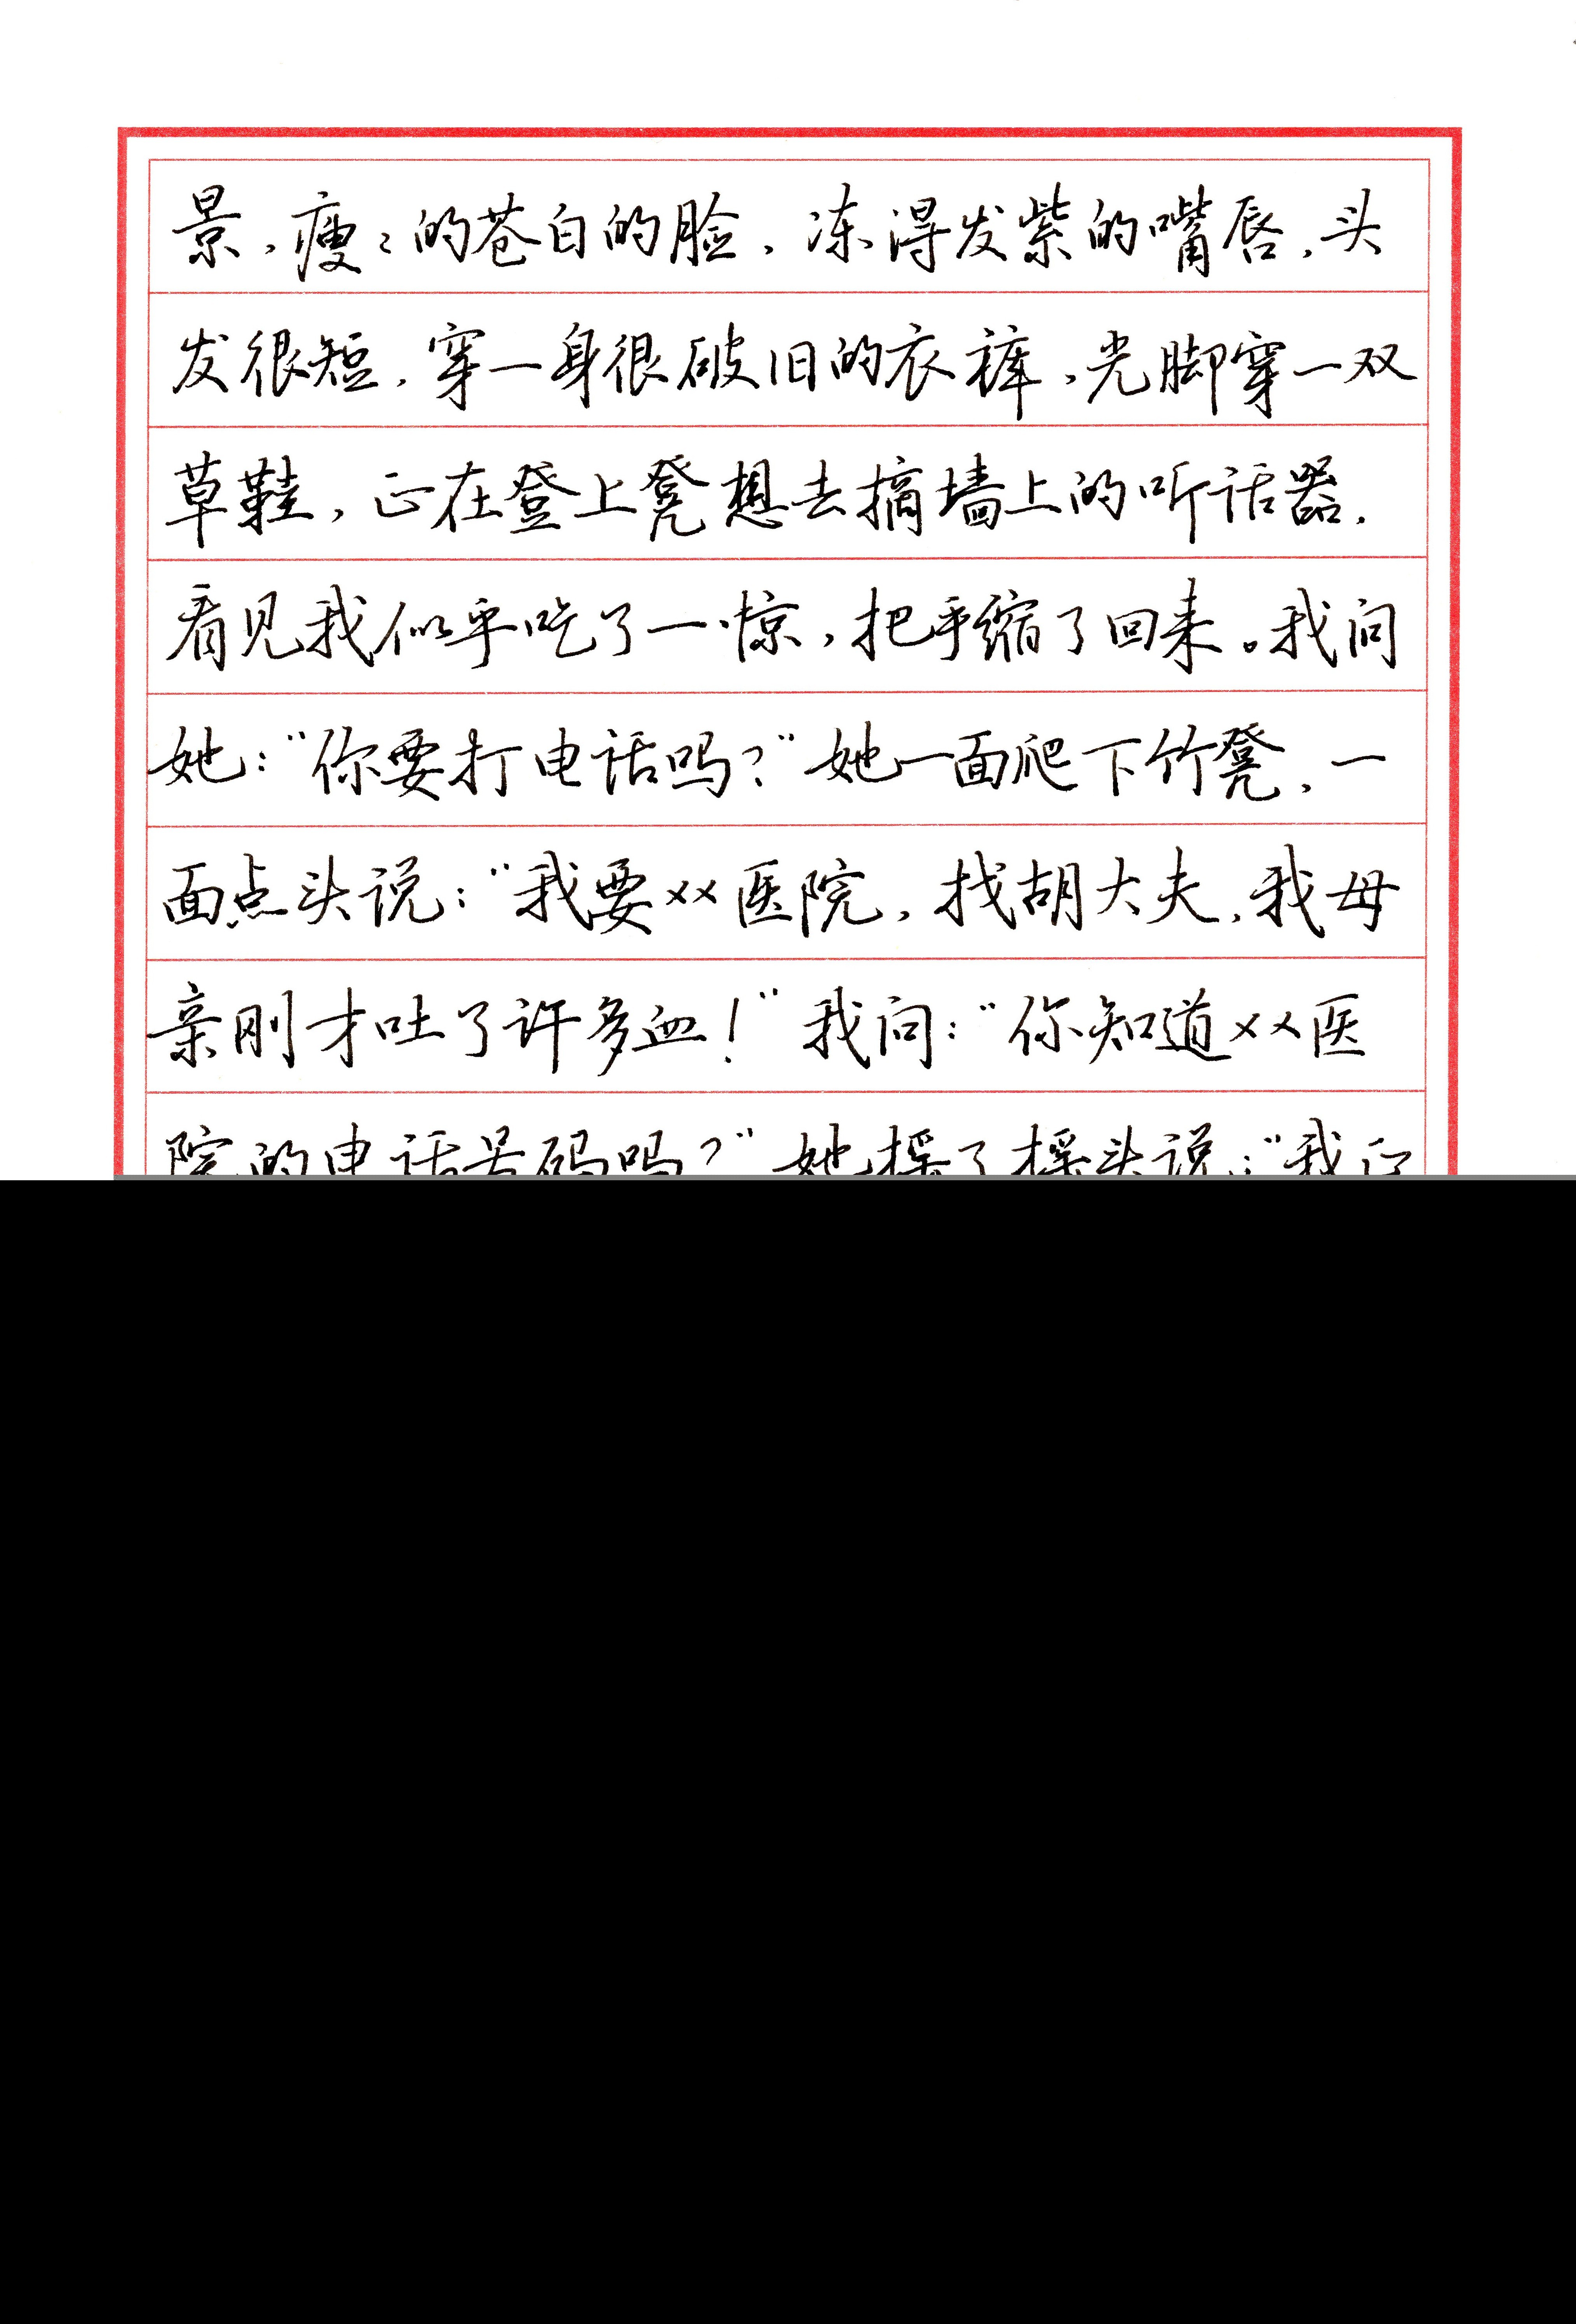 景,瘦々的苍白的脸,冻得发紫的嘴唇,头
发很短,穿一身很破旧的衣裤,光脚穿一双
草鞋,正在登上凳想去摘墙上的听话器.
看见我似乎吃了一惊,把手缩了回来。我问
她:“你要打电话吗?”她一面爬下竹凳,一
面点头说:“我要××医院,找胡大夫,我母
亲刚才吐了许多血!”我问:“你知道××医
院的电话号码吗?”她摇了摇头说:“我正